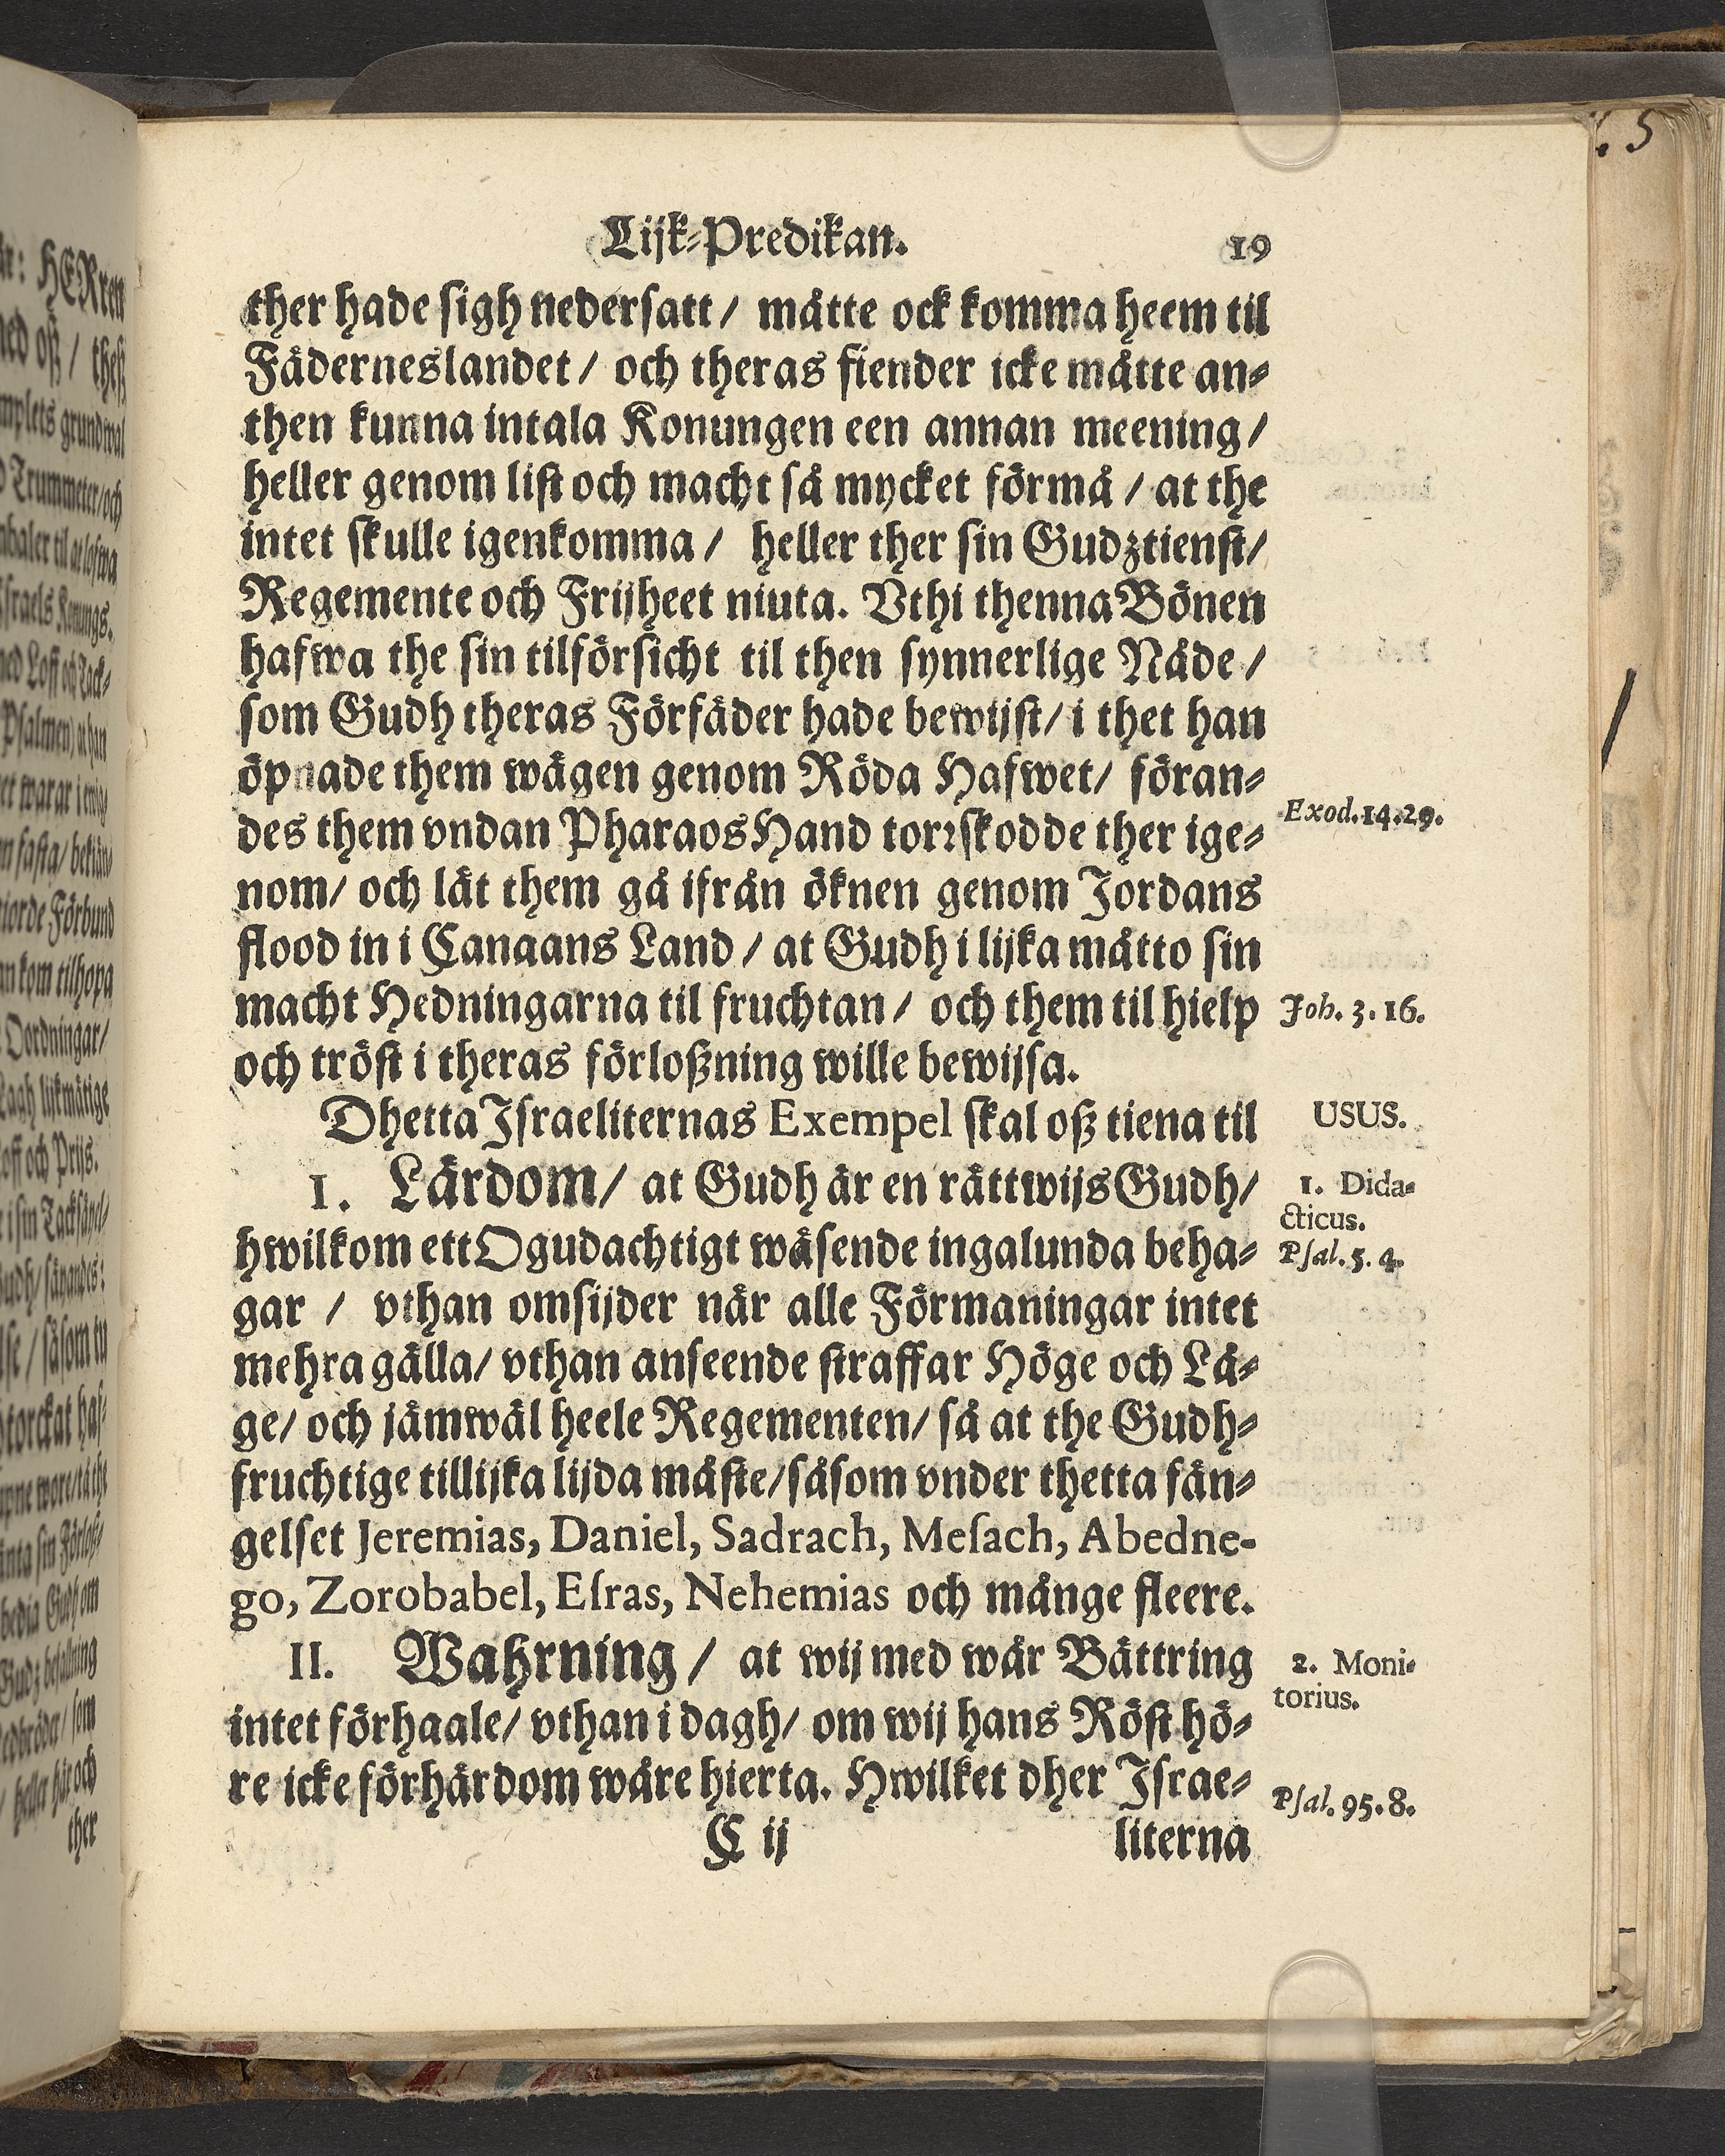 Lijk-Predikan. 19
ther hade sigh nedersatt / måtte ock komma heem til
Fäderneslandet / och theras fiender icke måtte an-
then kunna intala Konungen een annan meening /
heller genom list och macht så mycket förmå / at the
intet skulle igenkomma / heller ther sin Gudztienst /
Regemente och Frijheet niuta. Vthi thenna Bönen
hafwa the sin tilförsicht til then synnerlige Nåde /
som Gudh theras Förfäder hade bewijst / i thet han
öpnade them wägen genom Röda Hafwet / föran-
des them vndan Pharaos Hand torrskodde ther ige-
Exod. 14. 29.
nom / och lät them gå ifrån öknen genom Jordans
flood in i Canaans Land / at Gudh i lijka måtto sin
macht Hedningarna til fruchtan / och them til hielp
Joh. 3. 16.
och tröst i theras förloßning wille bewijsa.
Dhetta Israeliternas Exempel skal oß tiena til
USUS.
I. Lärdom / at Gudh är en rättwijs Gudh /
1. Dida-
cticus.
hwilkom ett Ogudachtigt wäsende ingalunda beha-
Psal. 5. 4.
gar / vthan omsijder när alle Förmaningar intet
mehra gälla / vthan anseende straffar Höge och Lå-
ge / och jämwäl heele Regementen / så at the Gudh-
fruchtige tillijka lijda måste / såsom vnder thetta fän-
gelset Jeremias, Daniel, Sadrach, Mesach, Abedne-
go, Zorobabel, Esras, Nehemias och månge fleere.
II. Wahrning / at wij med wår Bättring
2. Moni-
torius.
intet förhaale / vthan i dagh / om wij hans Röst hö-
re icke förhärdom wåre hierta. Hwilket dher Israe-
Psal. 95. 8.
C ij literna